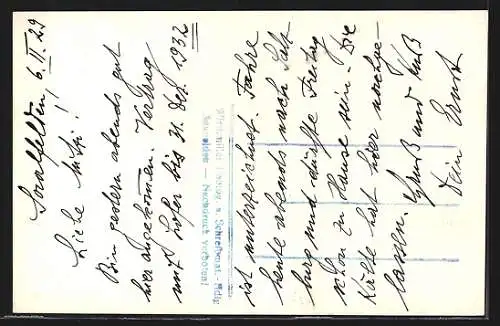 Saalfelden, 6. II. 29
Liebe Mitzi!
Bin gestern abends gut
hier angekommen. Vertrag
mit Hofer bis 31. Dez. 1932
ist unterzeichnet. Fahre
heute abends nach Salz
burg und dürfte Freitag
schon zu Hause sein. Die
Kälte hat hier nachge-
lassen. Gruß und Kuß
Dein Ernst
Schreibmat.-Hdlg.
Saalfelden — Nachdruck verboten!